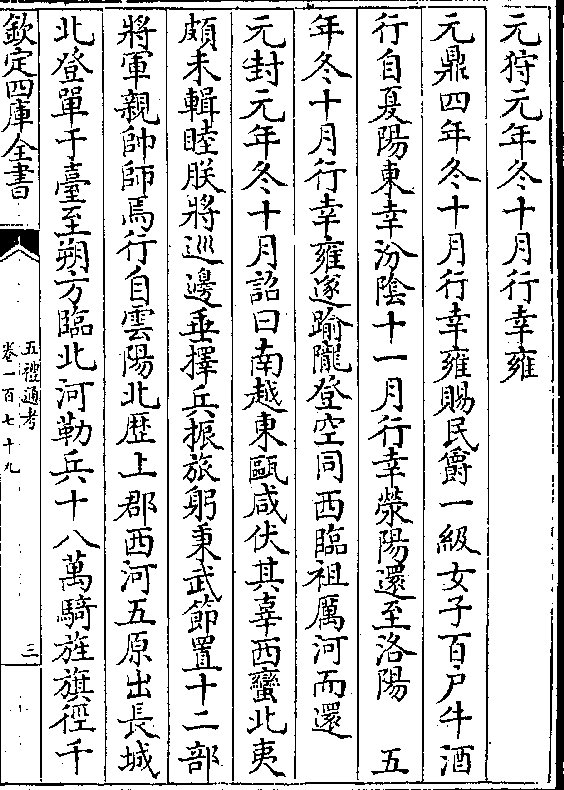 元狩元年冬十月行幸雍
元鼎四年冬十月行幸雍賜民爵一級女子百戸牛酒
行自夏陽東幸汾陰十一月行幸滎陽還至洛陽　五
年冬十月行幸雍遂踰隴登空同西臨祖厲河而還
元封元年冬十月詔曰南越東甌咸伏其辜西蠻北夷
頗未輯睦朕將巡邊垂擇兵振旅躬秉武節置十二部
將軍親帥師焉行自雲陽北歴上郡西河五原出長城
北登單于臺至朔方臨北河勒兵十八萬騎旌旗徑千
欽定四庫全書
五禮通考
卷一百七十九
三